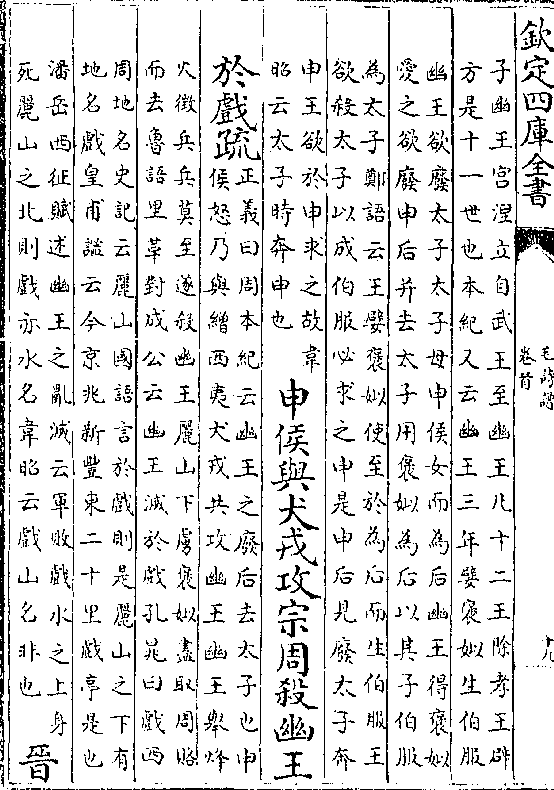 欽定四庫全書
毛詩譜
卷首
十九
子幽王宫涅立自武王至幽王凡十二王除孝王辟
方是十一世也本紀又云幽王三年嬖褒姒生伯服
幽王欲廢太子太子母申侯女而為后幽王得褒姒
愛之欲廢申后并去太子用褒姒為后以其子伯服
為太子鄭語云王嬖褒姒使至於為后而生伯服王
欲殺太子以成伯服必求之申是申后見廢太子奔
申王欲於申求之故韋
昭云太子時奔申也
申侯與犬戎攻宗周殺幽王
於戲疏
正義曰周本紀云幽王之廢后去太子也申
侯怒乃與繒西夷犬戎共攻幽王幽王舉烽
火徵兵兵莫至遂殺幽王麗山下虜褒姒盡取周賂
而去魯語里革對成公云幽王滅於戲孔晁曰戲西
周地名史記云麗山國語言於戲則是麗山之下有
地名戲皇甫謐云今京兆新豐東二十里戲亭是也
潘岳西征賦述幽王之亂滅云軍敗戲水之上身
死麗山之北則戲亦水名韋昭云戲山名非也
晉